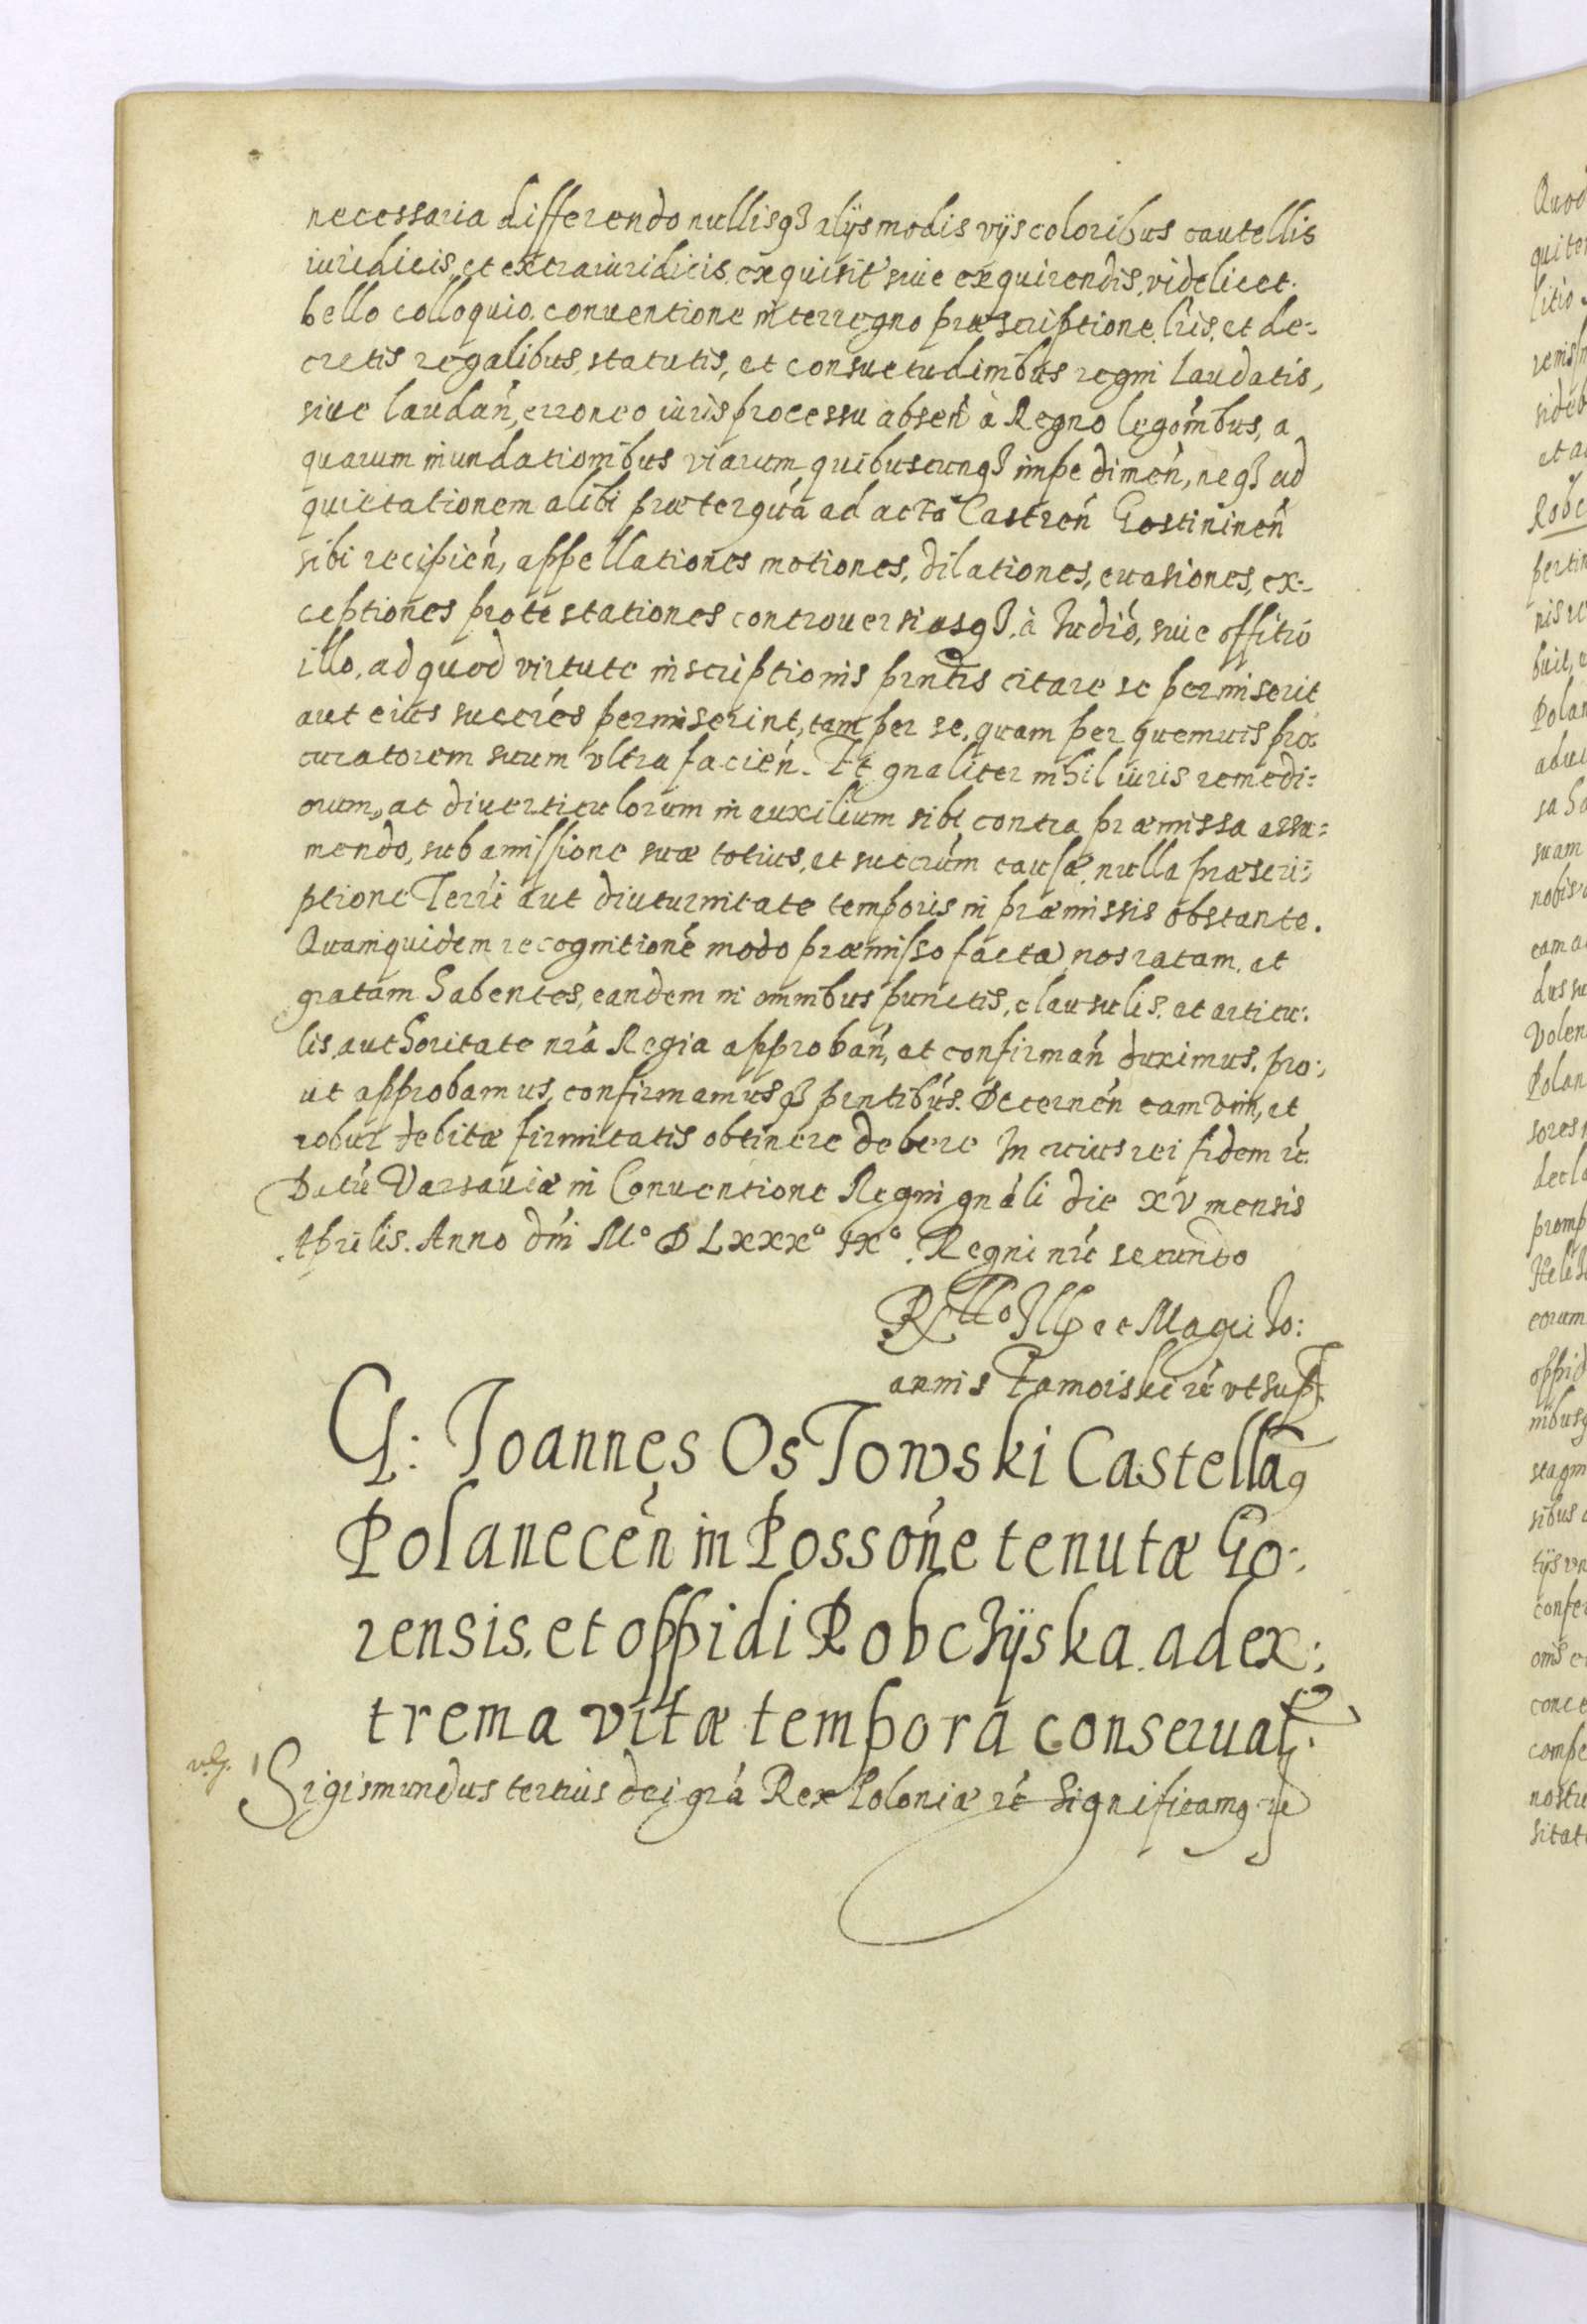 necessaria differendo nullisqȝ alijs modis vijs coloribus cautellis
iuridicis, et extraiuridicis, exquisit' siue exquirendis, videlicet.
bello colloquio, conuentione interregno præscriptione, lr̃is, et de:
cretis regalibus, statutis, et consuetudinibus regni laudatis,
siue laudań, erroneo iuris processu absen̄ à Regno legońibus, a
quarum inundationibus viarum quibuscunqȝ impedimeń, neqȝ ad
quietationem alibi præterquá ad acta Castreń Gostinineń
sibi recipień, appellationes motiones, dilationes, euasiones, ex:
ceptiones protestationes controuersiasqȝ, à Iudió, siue offitió
illo, ad quod virtute inscriptionis prñtis citare se permiserit
aut eius succrés permiserint, tam per se, quam per quemuis pro
curatorem suum vltra facień. Et gnaliter nihil iuris remedi:
orum, ac diuerticulorum in auxilium sibi contra præmissa assu:
mendo, sub amissione suæ totius, et succrúm causæ, nulla præscri:
ptione Terrĩ aut diuturnitate temporis in præmissis obstante.
Quamquidem recognitionē modo præmisso factā nos ratam, et
gratam habentes, eandem in omnibus punctis, clausulis, et articu:
lis, authoritate nrá Regia approbań, et confirmań duximus, pro:
ut approbamus, confirmamusqȝ prńtibús. Decerneń eam vim, et
robur debitæ firmitatis obtinere debere In cuius rei fidem rć.
Datú Varsauiæ in Conuentione Regni gnáli die XV mensis
Aprilis. Anno dńi M° D Lxxx° ix°. Regni nrĩ secundo
Rllo Illp et Magci Io:
annis Zamoiski rć vt sup.
G: Joannes OsTowski Castellāꝯ
Polanecéń in Possońe tenutæ Go:
rensis, et oppidi Robchÿska ad ex:
trema vitæ tempora conseruat.
Sigismundus tertius dei grá Rex Poloniæ rć Significamꝯ rć